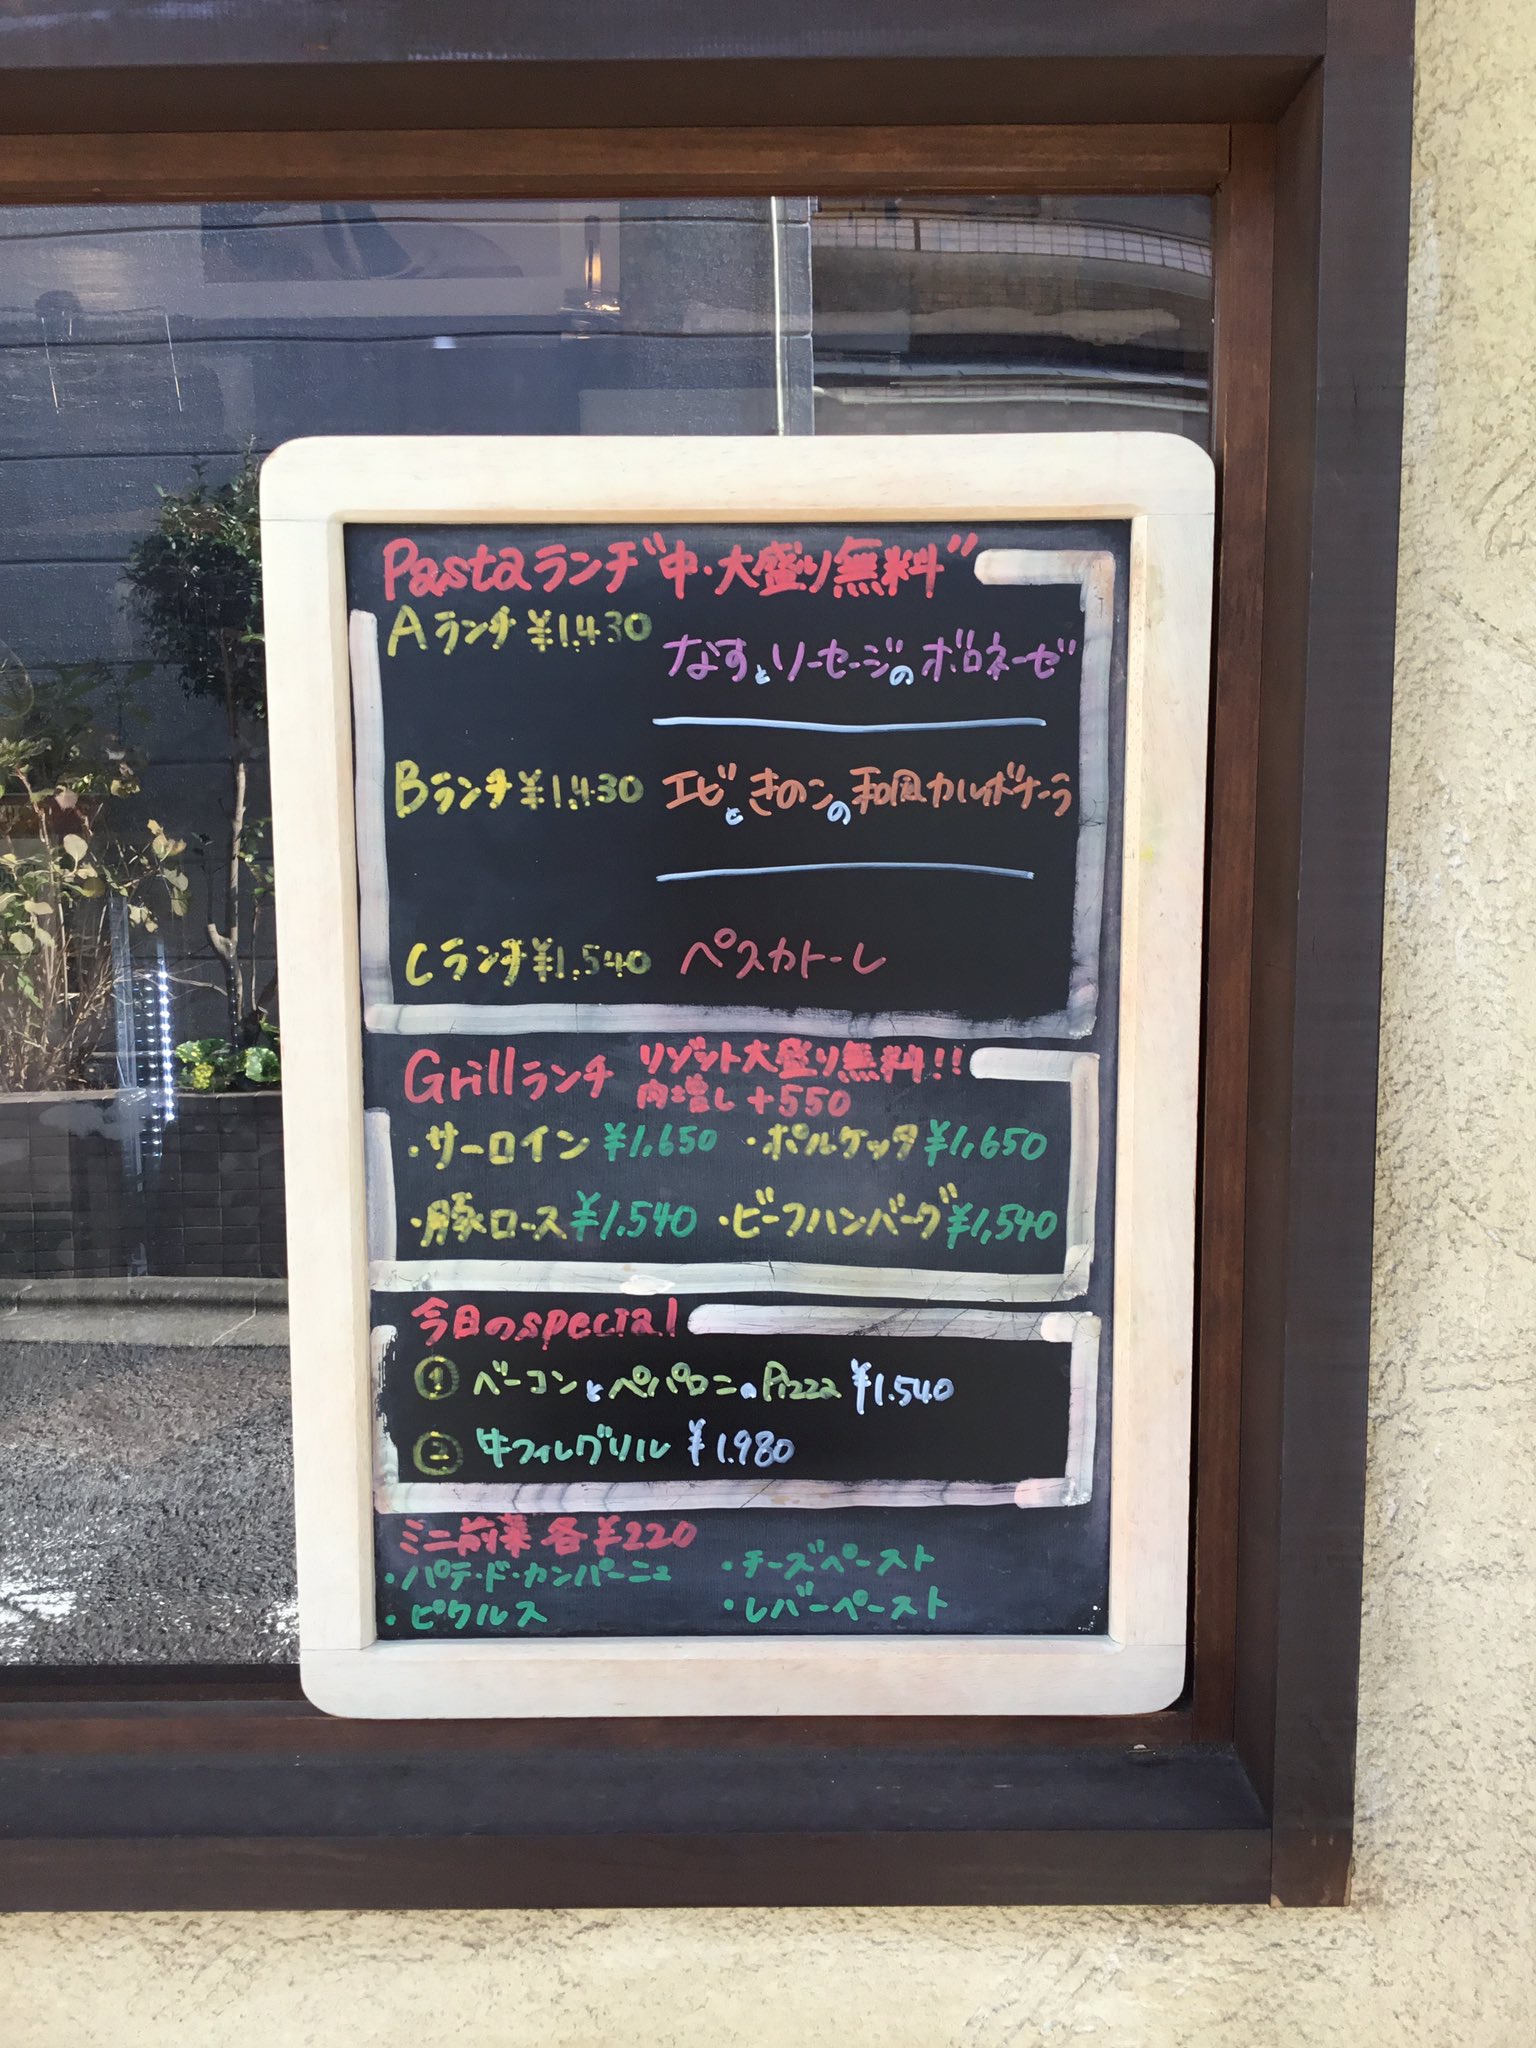 Pastaランチ"中・大盛り無料"
Aランチ ¥1.430 なすとソーセージのボロネーゼ
Bランチ ¥1.430 エビときのこの和風カルボナーラ
Cランチ ¥1.540 ペスカトーレ
Grillランチ リゾット大盛り無料!!
肉増し +550
・サーロイン ¥1,650 ・ポルケッタ ¥1,650
・豚ロース ¥1.540 ・ビーフハンバーグ ¥1,540
今日のspecial
① ベーコンとペパロニのPizza ¥1.540
② 牛フィレグリル ¥1.980
ミニ前菜 各¥220
・パテ・ド・カンパーニュ ・チーズペースト
・ピクルス ・レバーペースト